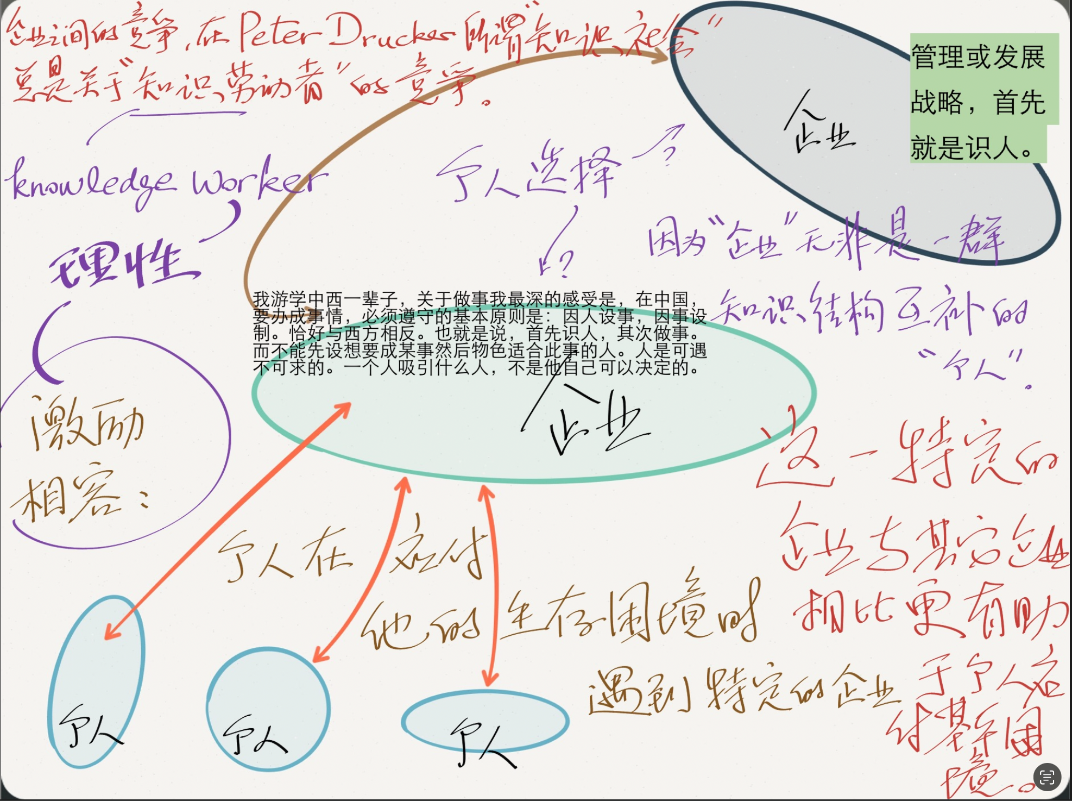 企业之间的竞争,在Peter Drucker所谓"知识社会"
总是关于"知识劳动者"的竞争。
管理或发展
战略，首先
就是识人。
企业
knowledge worker
个人选择
?
?
理性
因为"企业"无非是一群
知识结构互补的
"个人"。
我游学中西一辈子，关于做事我最深的感受是，在中国，
要办成事情，必须遵守的基本原则是：因人设事，因事设
制。恰好与西方相反。也就是说，首先识人，其次做事。
而不能先设想要成某事然后物色适合此事的人。人是可遇
不可求的。一个人吸引什么人，不是他自己可以决定的。
企业
激励
相容：
这一特定的
企业与其它企业
相比更有助
于个人应
付其生存困
境。
个人在 应付
他的生存困境时
遇到特定的企业
个人
个人
个人